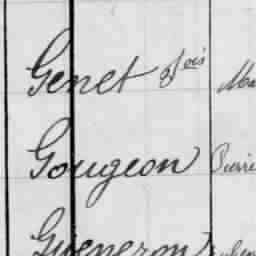 Genet Fois
Gougeon Pierre
Gueneron